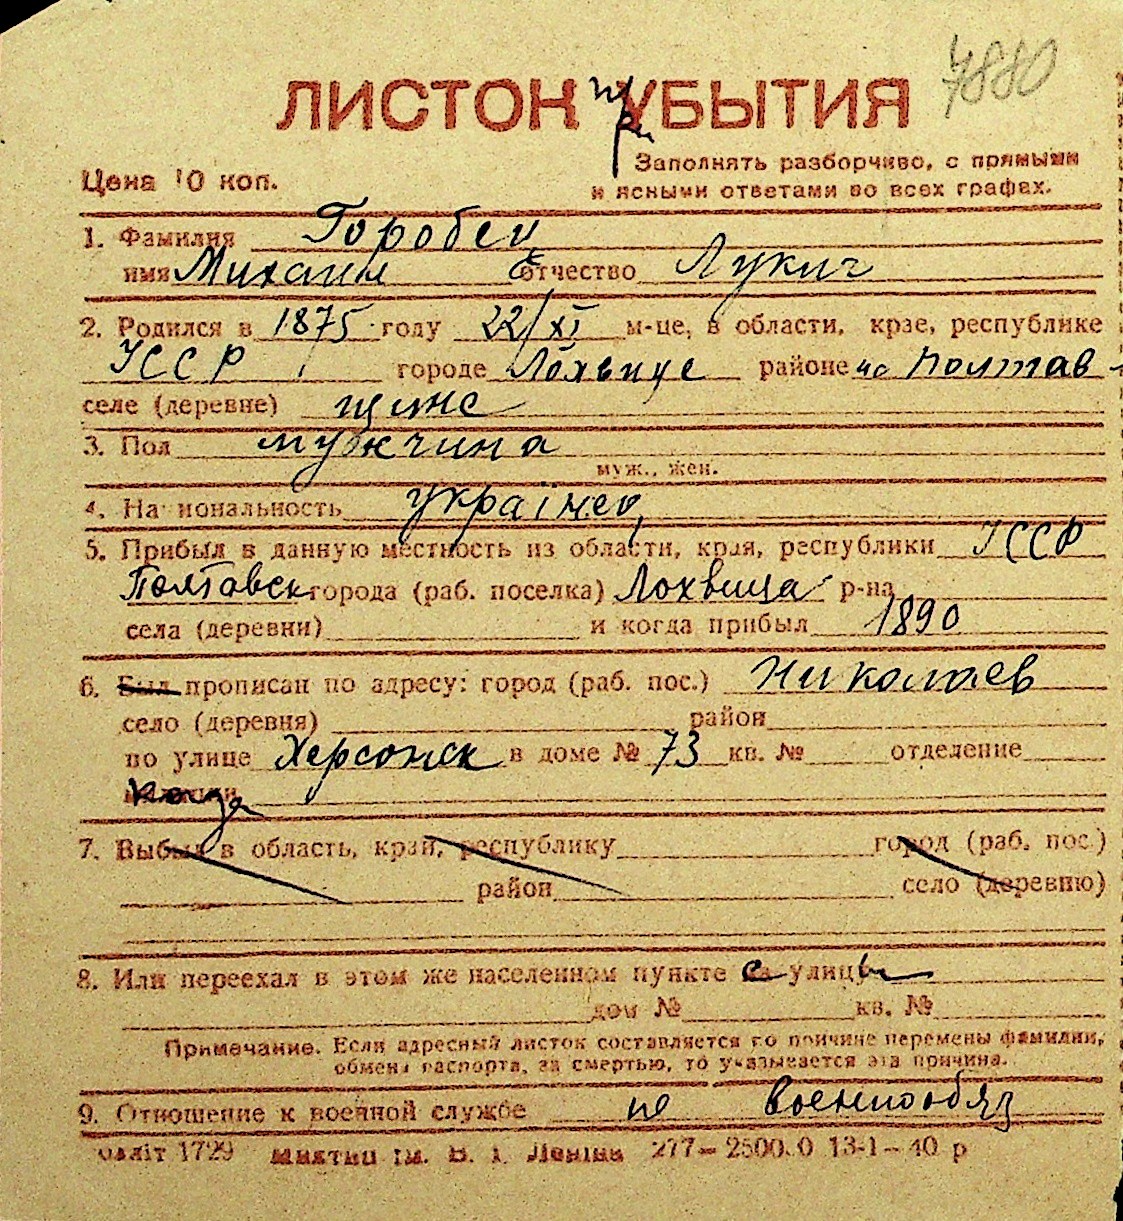 7880
ЛИСТОК при УБЫТИЯ
Цена 10 коп.
Заполнять разборчиво, с прямыми
и ясными ответами во всех графах.
1. Фамилия Горобец
имя Михаил отчество Лукич
2. Родился в 1875 году 22/XI м-це, в области, крае, республике
УССР городе Лохвице районе на Полтав-
селе (деревне) щине
3. Пол мужчина
муж., жен.
4. Национальность українец
5. Прибыл в данную местность из области, края, республики УССР
Полтавск города (раб. поселка) Лохвица р-на
села (деревни) и когда прибыл 1890
6. Был прописан по адресу: город (раб. пос.) Николаев
село (деревня) район
по улице Херсонск в доме № 73 кв. № отделение
7. Выбыл в область, край, республику город (раб. пос.)
район село (деревню)
8. Или переехал в этом же населенном пункте с улицы
дом № кв. №
Примечание. Если адресный листок составляется по причине перемены фамилии,
обмена паспорта, за смертью, то указывается эта причина.
9. Отношение к военной службе не военнообяз
облiт 1729 Миктип iм. В. I. Ленiна 277— 2500.0 13-1—40 р